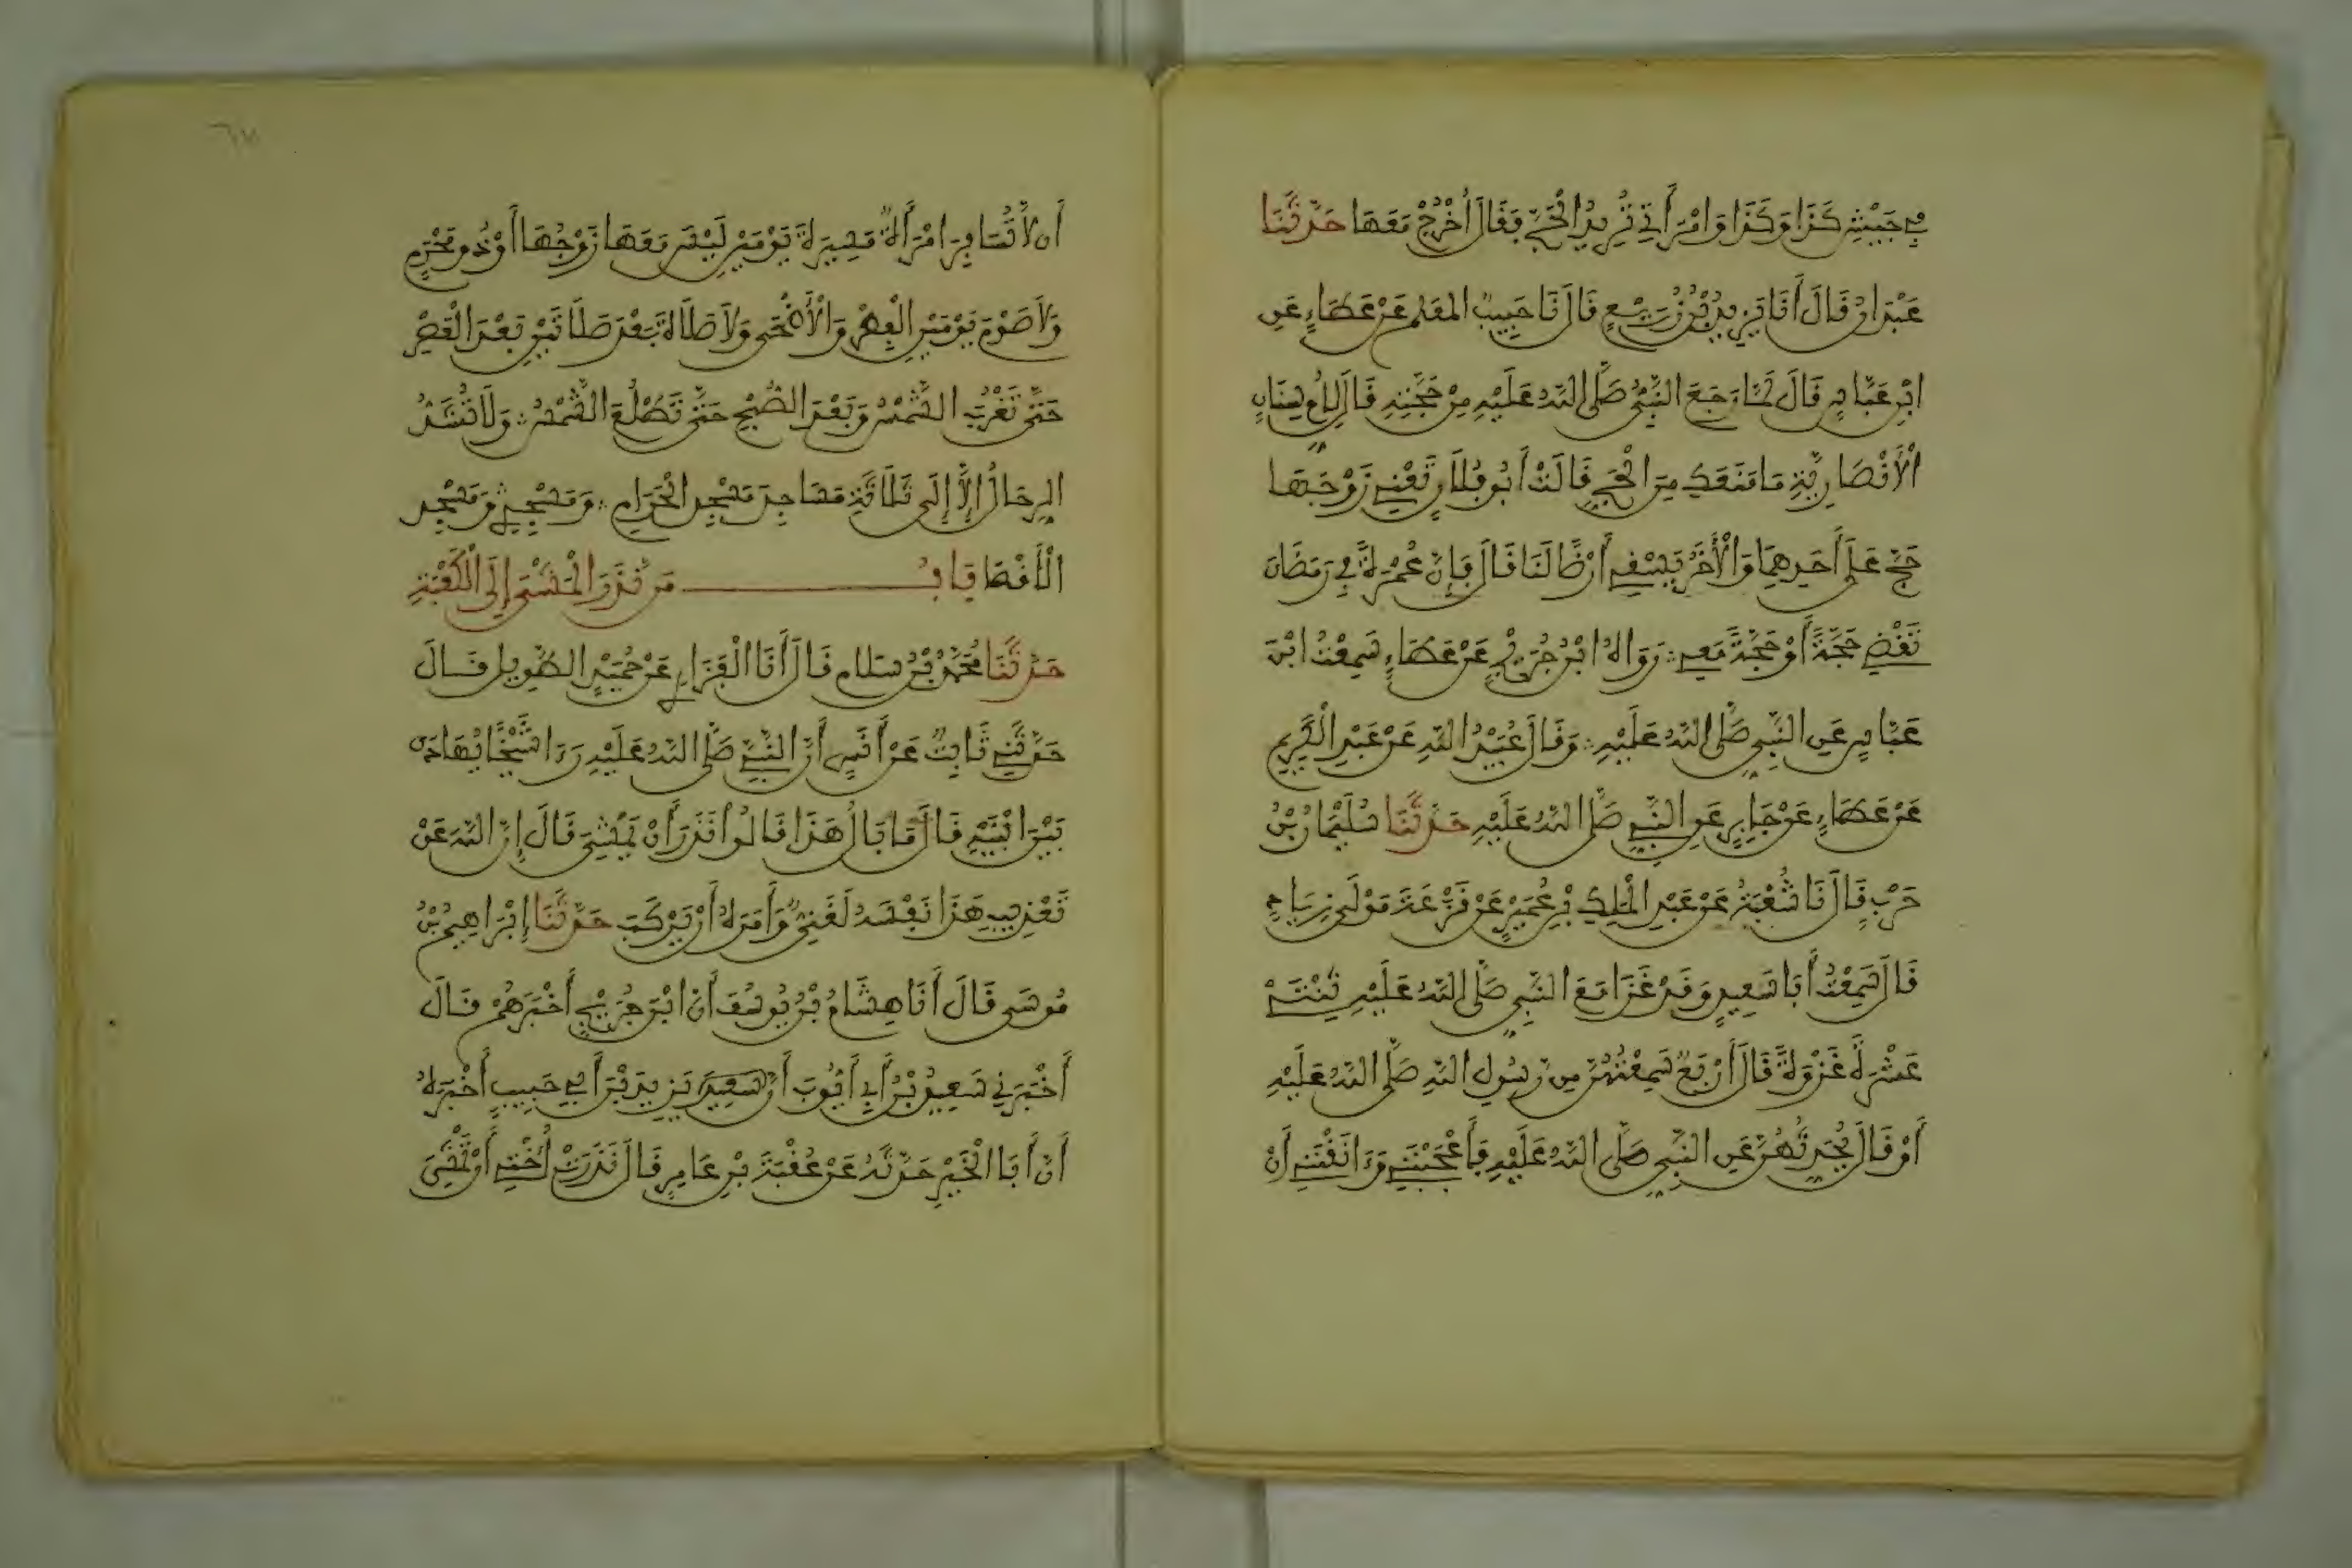 في جَيْشِ كَذَا وَكَذَا وَامْرَأَتِي تُرِيدُ الْحَجَّ فَقَالَ اُخْرُجْ مَعَهَا حَدَّثَنَا
عَبْدَانُ قَالَ أَنَا يَزِيدُ بْنُ زُرَيْعٍ قَالَ نَا حَبِيبٌ الْمُعَلِّمُ عَنْ عَطَاءٍ عَنِ
ابْنِ عَبَّاسٍ قَالَ لَمَّا رَجَعَ النَّبِيُّ صَلَّى اللهُ عَلَيْهِ مِنْ حَجَّتِهِ قَالَ لِأُمِّ سِنَانٍ
الْأَنْصَارِيَّةِ مَا مَنَعَكِ مِنَ الْحَجِّ قَالَتْ أَبُو فُلَانٍ تَعْنِي زَوْجَهَا
حَجَّ عَلَى أَحَدِهِمَا وَالْأَخَرُ يَسْقِي أَرْضًا لَنَا قَالَ فَإِنَّ عُمْرَةً فِي رَمَضَانَ
تَقْضِي حَجَّةً أَوْ حَجَّةً مَعِي رَوَاهُ ابْنُ جُرَيْجٍ عَنْ عَطَاءٍ سَمِعْتُ ابْنَ
عَبَّاسٍ عَنِ النَّبِيِّ صَلَّى اللهُ عَلَيْهِ وَقَالَ عُبَيْدُ اللهِ عَنْ عَبْدِ الْكَرِيمِ
عَنْ عَطَاءٍ عَنْ جَابِرٍ عَنِ النَّبِيِّ صَلَّى اللهُ عَلَيْهِ حَدَّثَنَا سُلَيْمَانُ بْنُ
حَرْبٍ قَالَ نَا شُعْبَةُ عَنْ عَبْدِ الْمَلِكِ بْنِ عُمَيْرٍ عَنْ قَزَعَةَ مَوْلَى زِيَادٍ
قَالَ سَمِعْتُ أَبَا سَعِيدٍ وَقَدْ غَزَا مَعَ النَّبِيِّ صَلَّى اللهُ عَلَيْهِ ثِنْتَيْ
عَشْرَةَ غَزْوَةً قَالَ أَرْبَعٌ سَمِعْتُهُنَّ مِنْ رَسُولِ اللهِ صَلَّى اللهُ عَلَيْهِ
أَوْ قَالَ يُحَدِّثُهُنَّ عَنِ النَّبِيِّ صَلَّى اللهُ عَلَيْهِ فَأَعْجَبْنَنِي وَءَانَقْنَنِي أَنْ
أَن لَّا تُسَافِرَ امْرَأَةٌ مَسِيرَةَ يَوْمَيْنِ لَيْسَ مَعَهَا زَوْجُهَا أَوْ ذُو مَحْرَمٍ
وَلَا صَوْمَ يَوْمَيْنِ الْفِطْرِ وَالْأَضْحَى وَلَا صَلَاةَ بَعْدَ صَلَاتَيْنِ بَعْدَ الْعَصْرِ
حَتَّى تَغْرُبَ الشَّمْسُ وَبَعْدَ الصُّبْحِ حَتَّى تَطْلُعَ الشَّمْسُ وَلَا تُشَدُّ
الرِّحَالُ إِلَّا إِلَى ثَلَاثَةِ مَسَاجِدَ مَسْجِدِ الْحَرَامِ وَمَسْجِدِي وَمَسْجِدِ
الْأَقْصَا بَابُ مَن نَّذَرَ الْمَشْيَ إِلَى الْكَعْبَةِ
حَدَّثَنَا مُحَمَّدُ بْنُ سَلَامٍ قَالَ أَنَا الْفَزَارِيُّ عَنْ حُمَيْدٍ الطَّوِيلِ قَالَ
حَدَّثَنِي ثَابِتٌ عَنْ أَنَسٍ أَنَّ النَّبِيَّ صَلَّى اللهُ عَلَيْهِ رَءَا شَيْخًا يُهَادَى
بَيْنَ ابْنَيْهِ قَالَ مَا بَالُ هَذَا قَالُوا نَذَرَ أَنْ يَمْشِيَ قَالَ إِنَّ اللهَ عَنْ
تَعْذِيبِ هَذَا نَفْسَهُ لَغَنِيٌّ وَأَمَرَهُ أَنْ يَرْكَبَ حَدَّثَنَا إِبْرَاهِيمُ بْنُ
مُوسَى قَالَ أَنَا هِشَامُ بْنُ يُوسُفَ أَنَّ ابْنَ جُرَيْجٍ أَخْبَرَهُمْ قَالَ
أَخْبَرَنِي سَعِيدُ بْنُ أَبِي أَيُّوبَ أَنَّ يَزِيدَ بْنَ أَبِي حَبِيبٍ أَخْبَرَهُ
أَنَّ أَبَا الْخَيْرِ حَدَّثَهُ عَنْ عُقْبَةَ بْنِ عَامِرٍ قَالَ نَذَرَتْ أُخْتِي أَنْ تَمْشِيَ